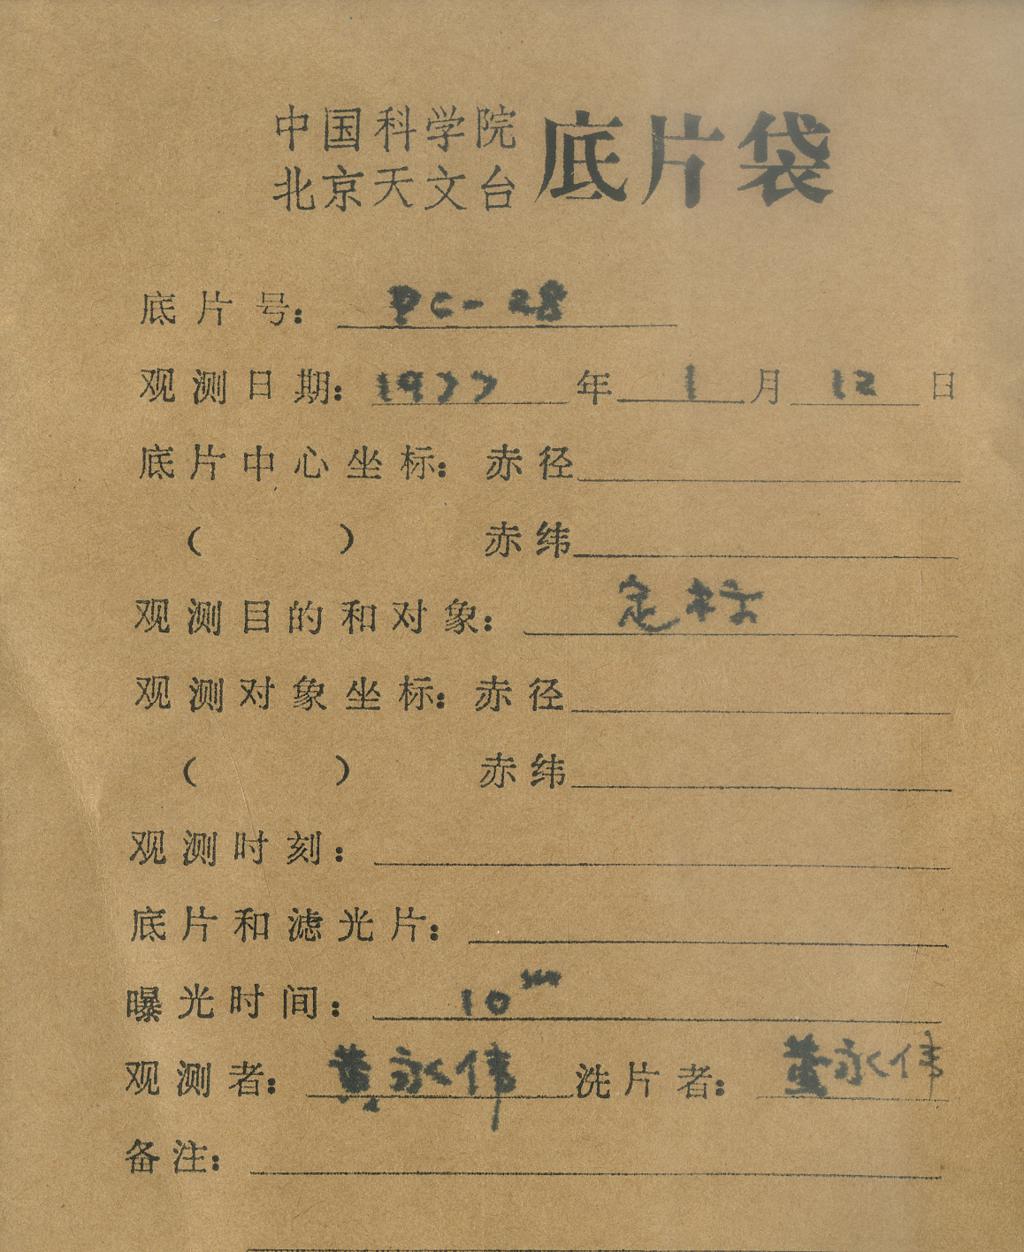 中国科学院
北京天文台
底片袋
底片号: PC-28
观测日期: 1977年1月12日
底片中心坐标: 赤径
( ) 赤纬
观测目的和对象: 定标
观测对象坐标: 赤径
( ) 赤纬
观测时刻:
底片和滤光片:
曝光时间: 10m
观测者: 黄永伟 洗片者: 黄永伟
备注: